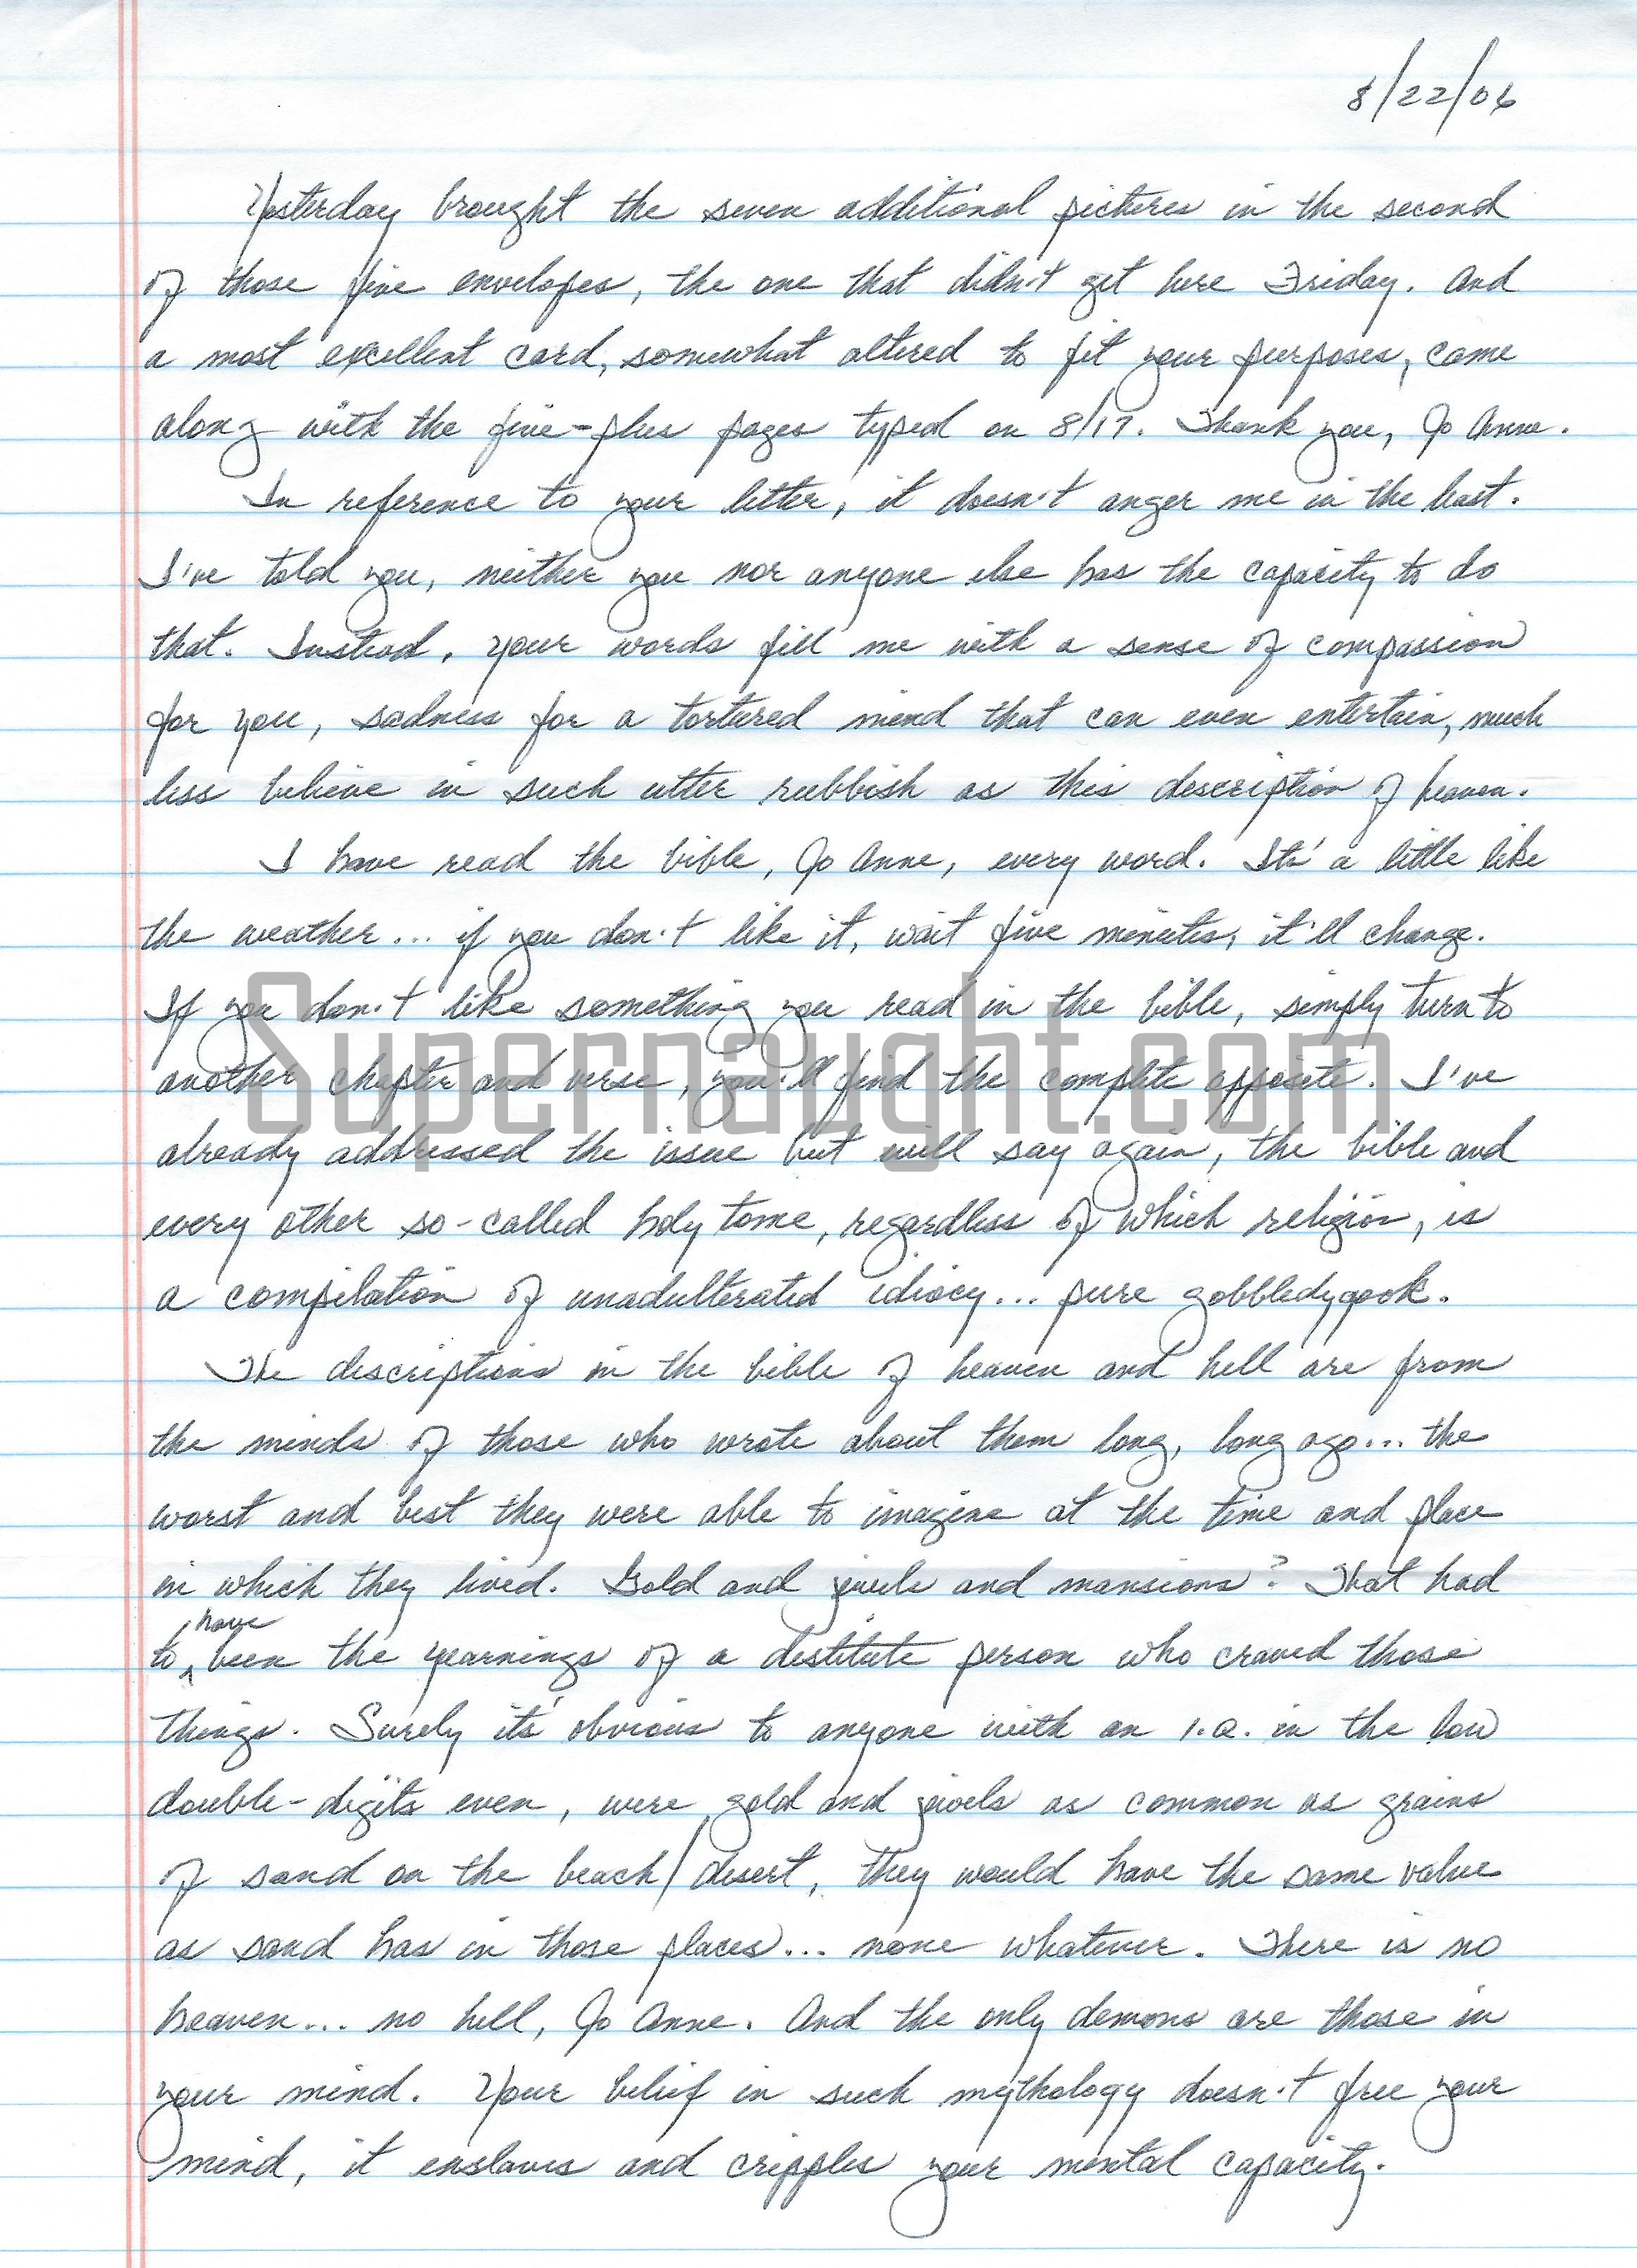 8/22/06
Yesterday brought the seven additional pictures in the second
of those five envelopes, the one that didn't get here Friday. And
a most excellent card, somewhat altered to fit your purposes, came
along with the five-plus pages typed on 8/17. Thank you, Jo Anne.
In reference to your letter, it doesn't anger me in the least.
I've told you, neither you nor anyone else has the capacity to do
that. Instead, your words fill me with a sense of compassion
for you, sadness for a tortured mind that can even entertain, much
less believe in such utter rubbish as this description of heaven.
I have read the bible, Jo Anne, every word. Its' a little like
the weather... if you don't like it, wait five minutes, it'll change.
If you don't like something you read in the bible, simply turn to
Supernaught.com
another chapter and verse, you'll find the complete opposite. I've
already addressed the issue but will say again, the bible and
every other so-called holy tome, regardless of which religion, is
a compilation of unadulterated idiocy... pure gobbledygook.
The descriptions in the bible of heaven and hell are from
the minds of those who wrote about them long, long ago... the
worst and best they were able to imagine at the time and place
in which they lived. Gold and jewels and mansions? That had
to have been the yearnings of a destitute person who craved those
things. Surely its' obvious to anyone with an I.Q. in the low
double-digits even, were gold and jewels as common as grains
of sand on the beach/desert, they would have the same value
as sand has in those places... none whatever. There is no
heaven... no hell, Jo Anne. And the only demons are those in
your mind. Your belief in such mythology doesn't free your
mind, it enslaves and cripples your mental capacity.